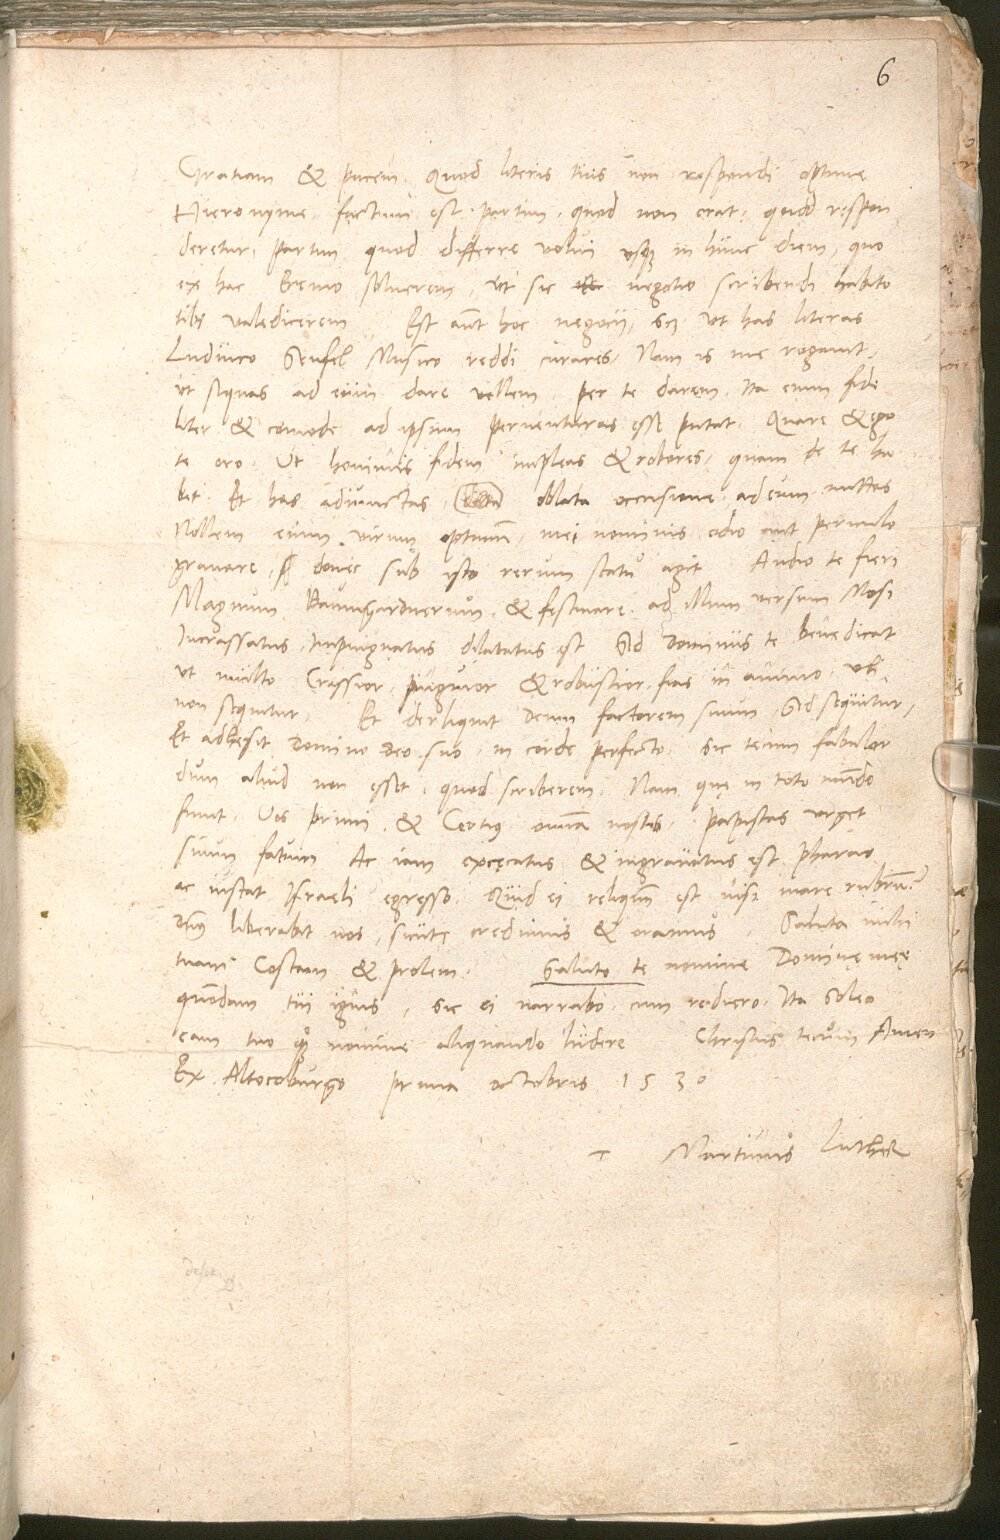 6
Gratiam & pacem. Quod literis tuis non respondi optime
Hieronyme, factum est partim, quod non erat, quod respon
deretur, partim quod differre volui usq; in hunc diem, quo
ex hac Eremo solverem, ut sic negotio scribendi habito
tibi valedicerem Est aut hoc negocij, scz ut has literas
Ludvico Senfel Musico reddi curares, Nam is me rogavit,
ut siquas ad eum dare vellem, per te darem, Ita enim fide
liter & comode ad ipsum perventuras esse putat. Quare & ego
te oro, Ut hominis fidem impleas & robores, quam de te ha
bet. Et has adiunctas, oblata occasione, ad eum mittas
Nollem enim virum optimum, mei nominis odio aut periculo
gravare, donec sub isto rerum statu agit Audio te fieri
Magnum Baumgardnerum, & festinare ad illum versum Mosi
Incrassatus, Impinguatus dilatatus est Sed Dominus te benedicat
ut multo Crassior, pinguior & robustior fias in animo, ubi
non sequitur, Et derliquit Deum factorem suum, Sed sequitur,
Et adhesit Domino Deo suo, in corde perfecto. Sic tecum fabulor
dum aliud non esset, quod scriberem, Nam quę in toto mundo
fiunt, Vos primi & Certius omnia nostis, Papistas urget
suum fatum Ac iam excęcatus & ingravatus est Pharao
ac instat Israeli egresso. Quid ei reliquum est nisi mare rubrum?
Dns liberabit nos, sicut credimus & oramus. Saluta mihi
tuam Costam & prolem. Saluto te nomine Dominę meę
quondam tui ignis, sic ei narrabo cum rediero. Ita soleo
eam tuo quoq; nomine aliquando ludere Christus tecum Amen
Ex Altocoburgo prima octobris 1530
T Martinus Luther